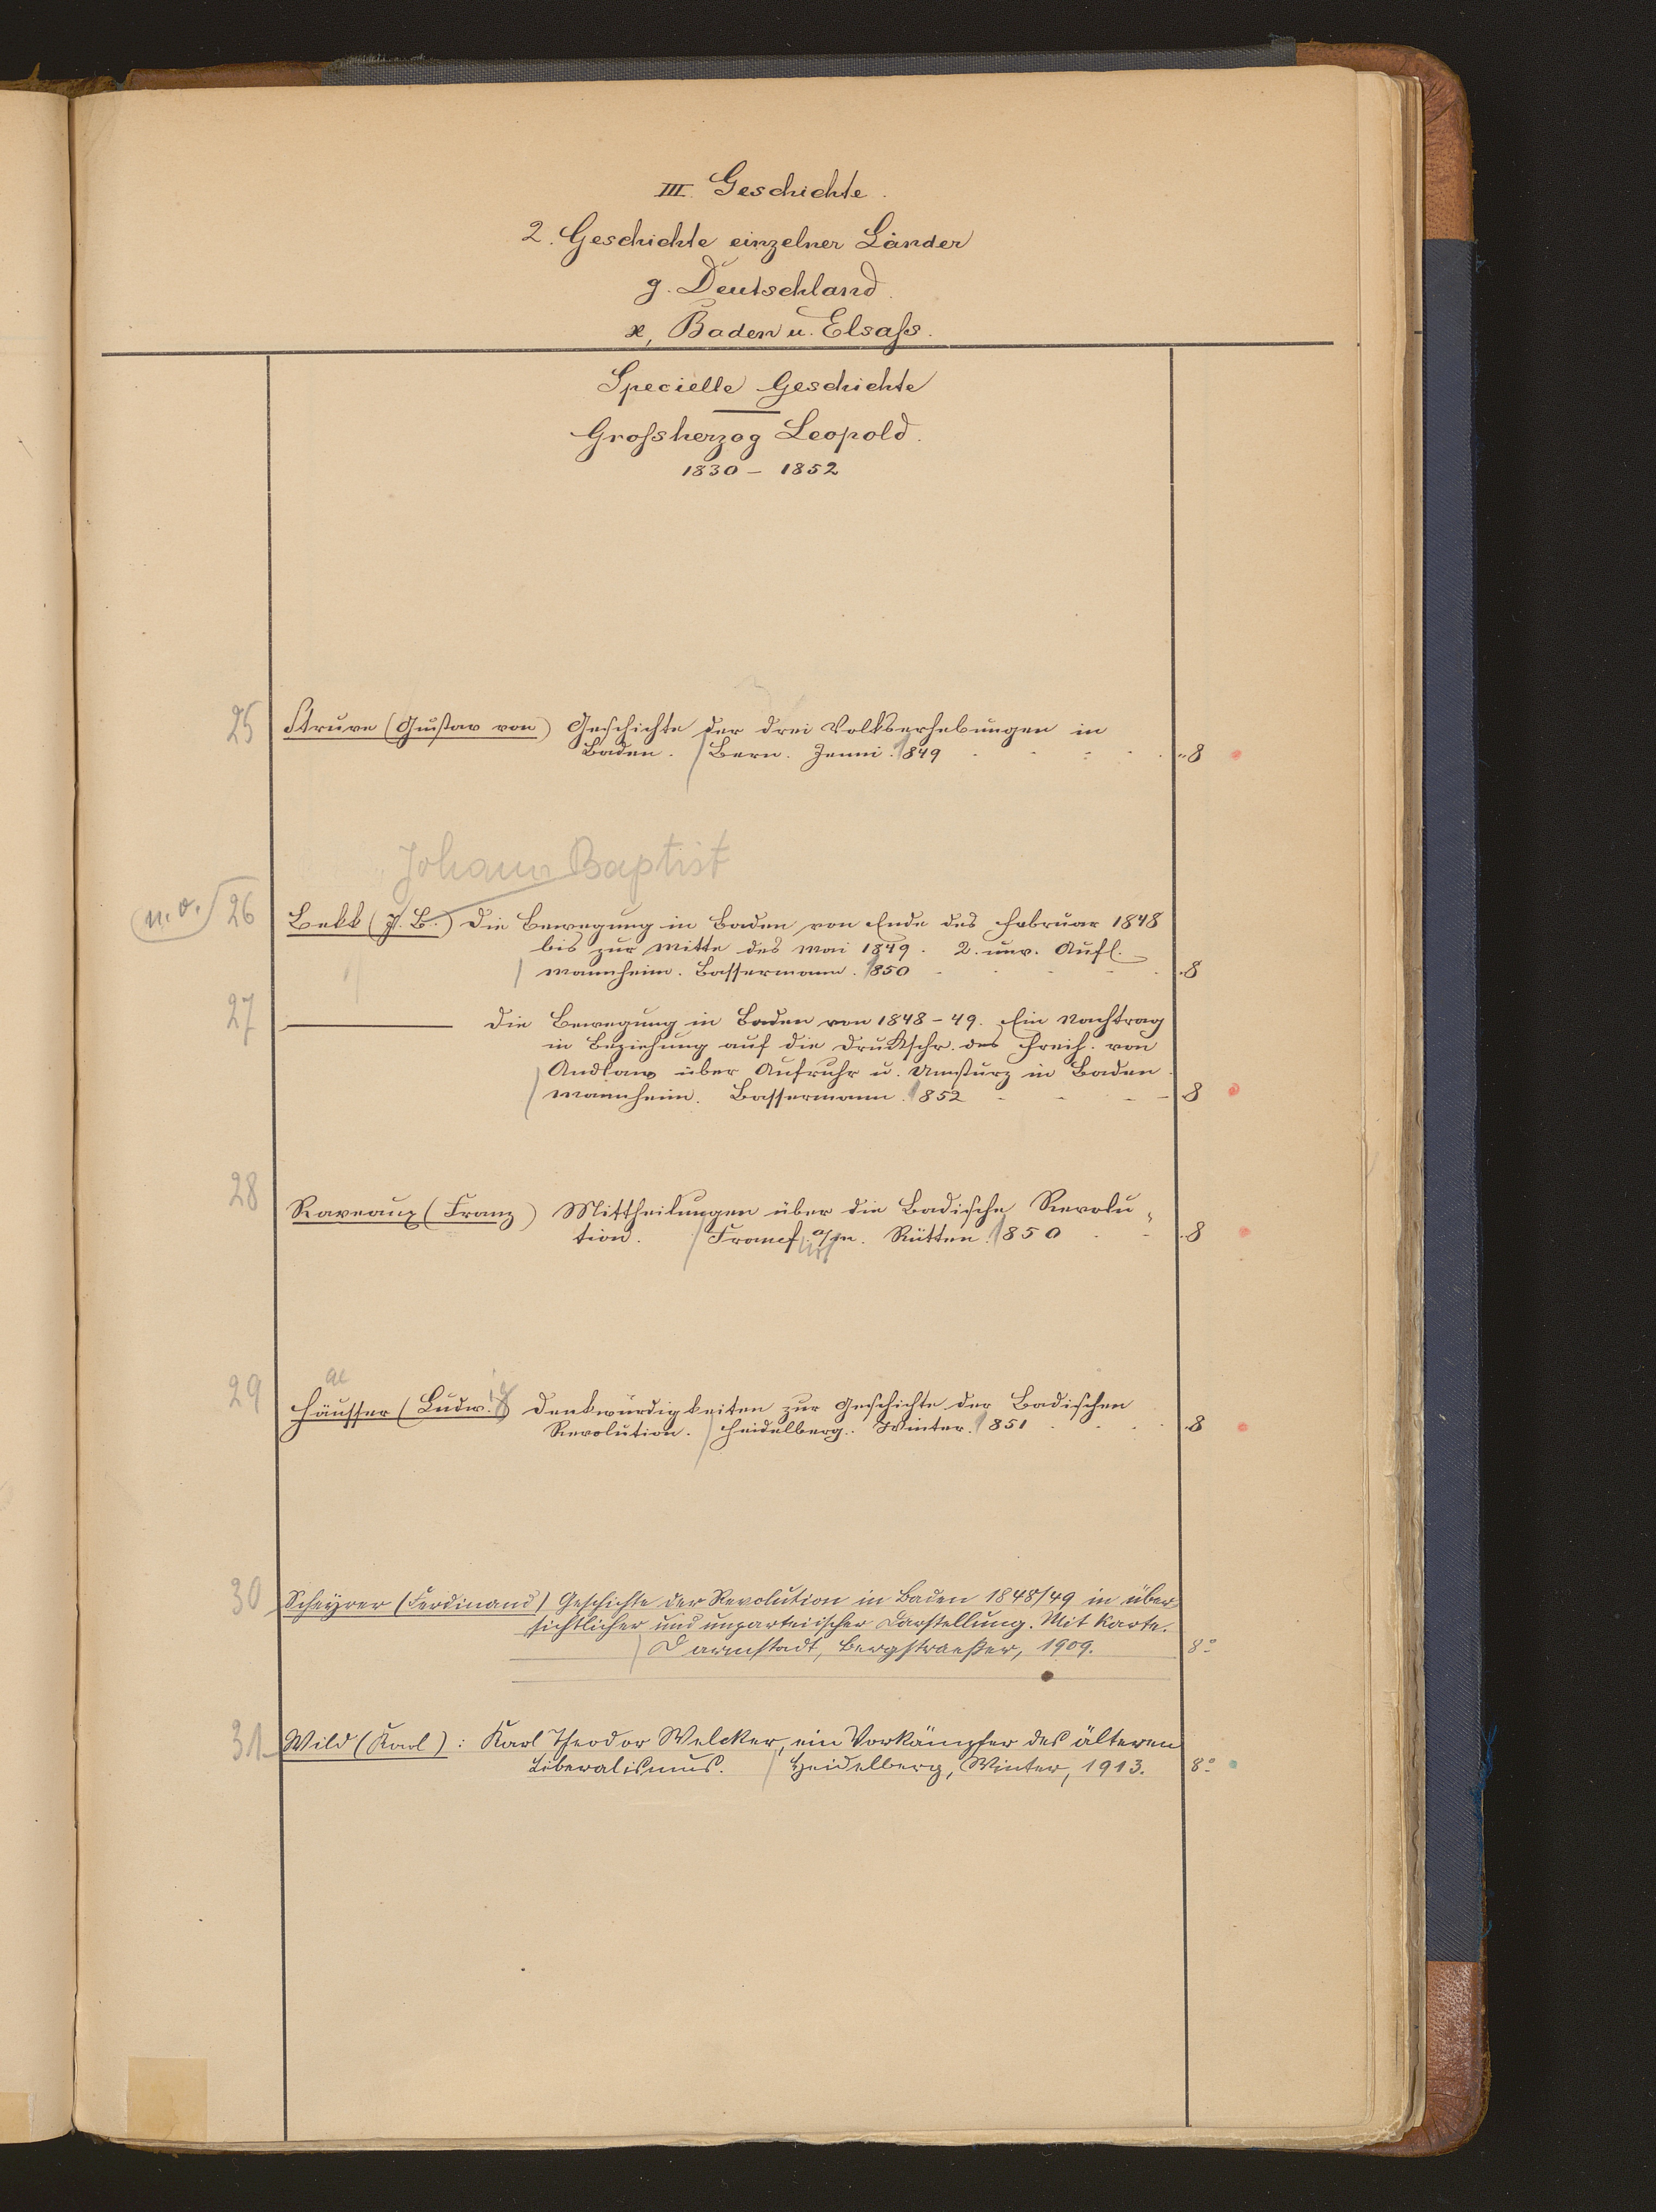 III. Geschichte.
2. Geschichte einzelner Länder
g. Deutschland.
ϰ, Baden u. Elsaſs.
Specielle Geschichte
Groſsherzog Leopold.
1830 – 1852
25 Struve (Gustav von) Geschichte der drei Volkserhebungen in
Baden. / Bern. Jenni. 1849 8
Johann Baptist
n. v. 26 Bekk (J. B.) Die Bewegung in Baden von Ende des Februar 1848
bis zur Mitte des Mai 1849. 2. unv. Aufl.
/ Mannheim. Bassermann. 1850 8
27 — Die Bewegung in Baden von 1848–49. Ein Nachtrag
in Beziehung auf die Druckschr. des Freih. von
Andlaw über Aufruhr u. Umsturz in Baden.
/ Mannheim. Bassermann. 1852 8
28 Raveaux (Franz) Mittheilungen über die Badische Revolu-
tion. / Francf. a/m. Rütten. 1850 8
ae
29 Häusser (Ludwig) Denkwürdigkeiten zur Geschichte der Badischen
Revolution. / Heidelberg. Winter. 1851 8
30 Scheyrer (Ferdinand) Geschichte der Revolution in Baden 1848/49 in über-
sichtlicher und unparteiischer Darstellung. Mit Karte.
/ Darmstadt, Bergstraeßer, 1909. 8°
31 Wild (Karl): Karl Theodor Welcker, ein Vorkämpfer des älteren
Liberalismus. / Heidelberg, Winter, 1913. 8°